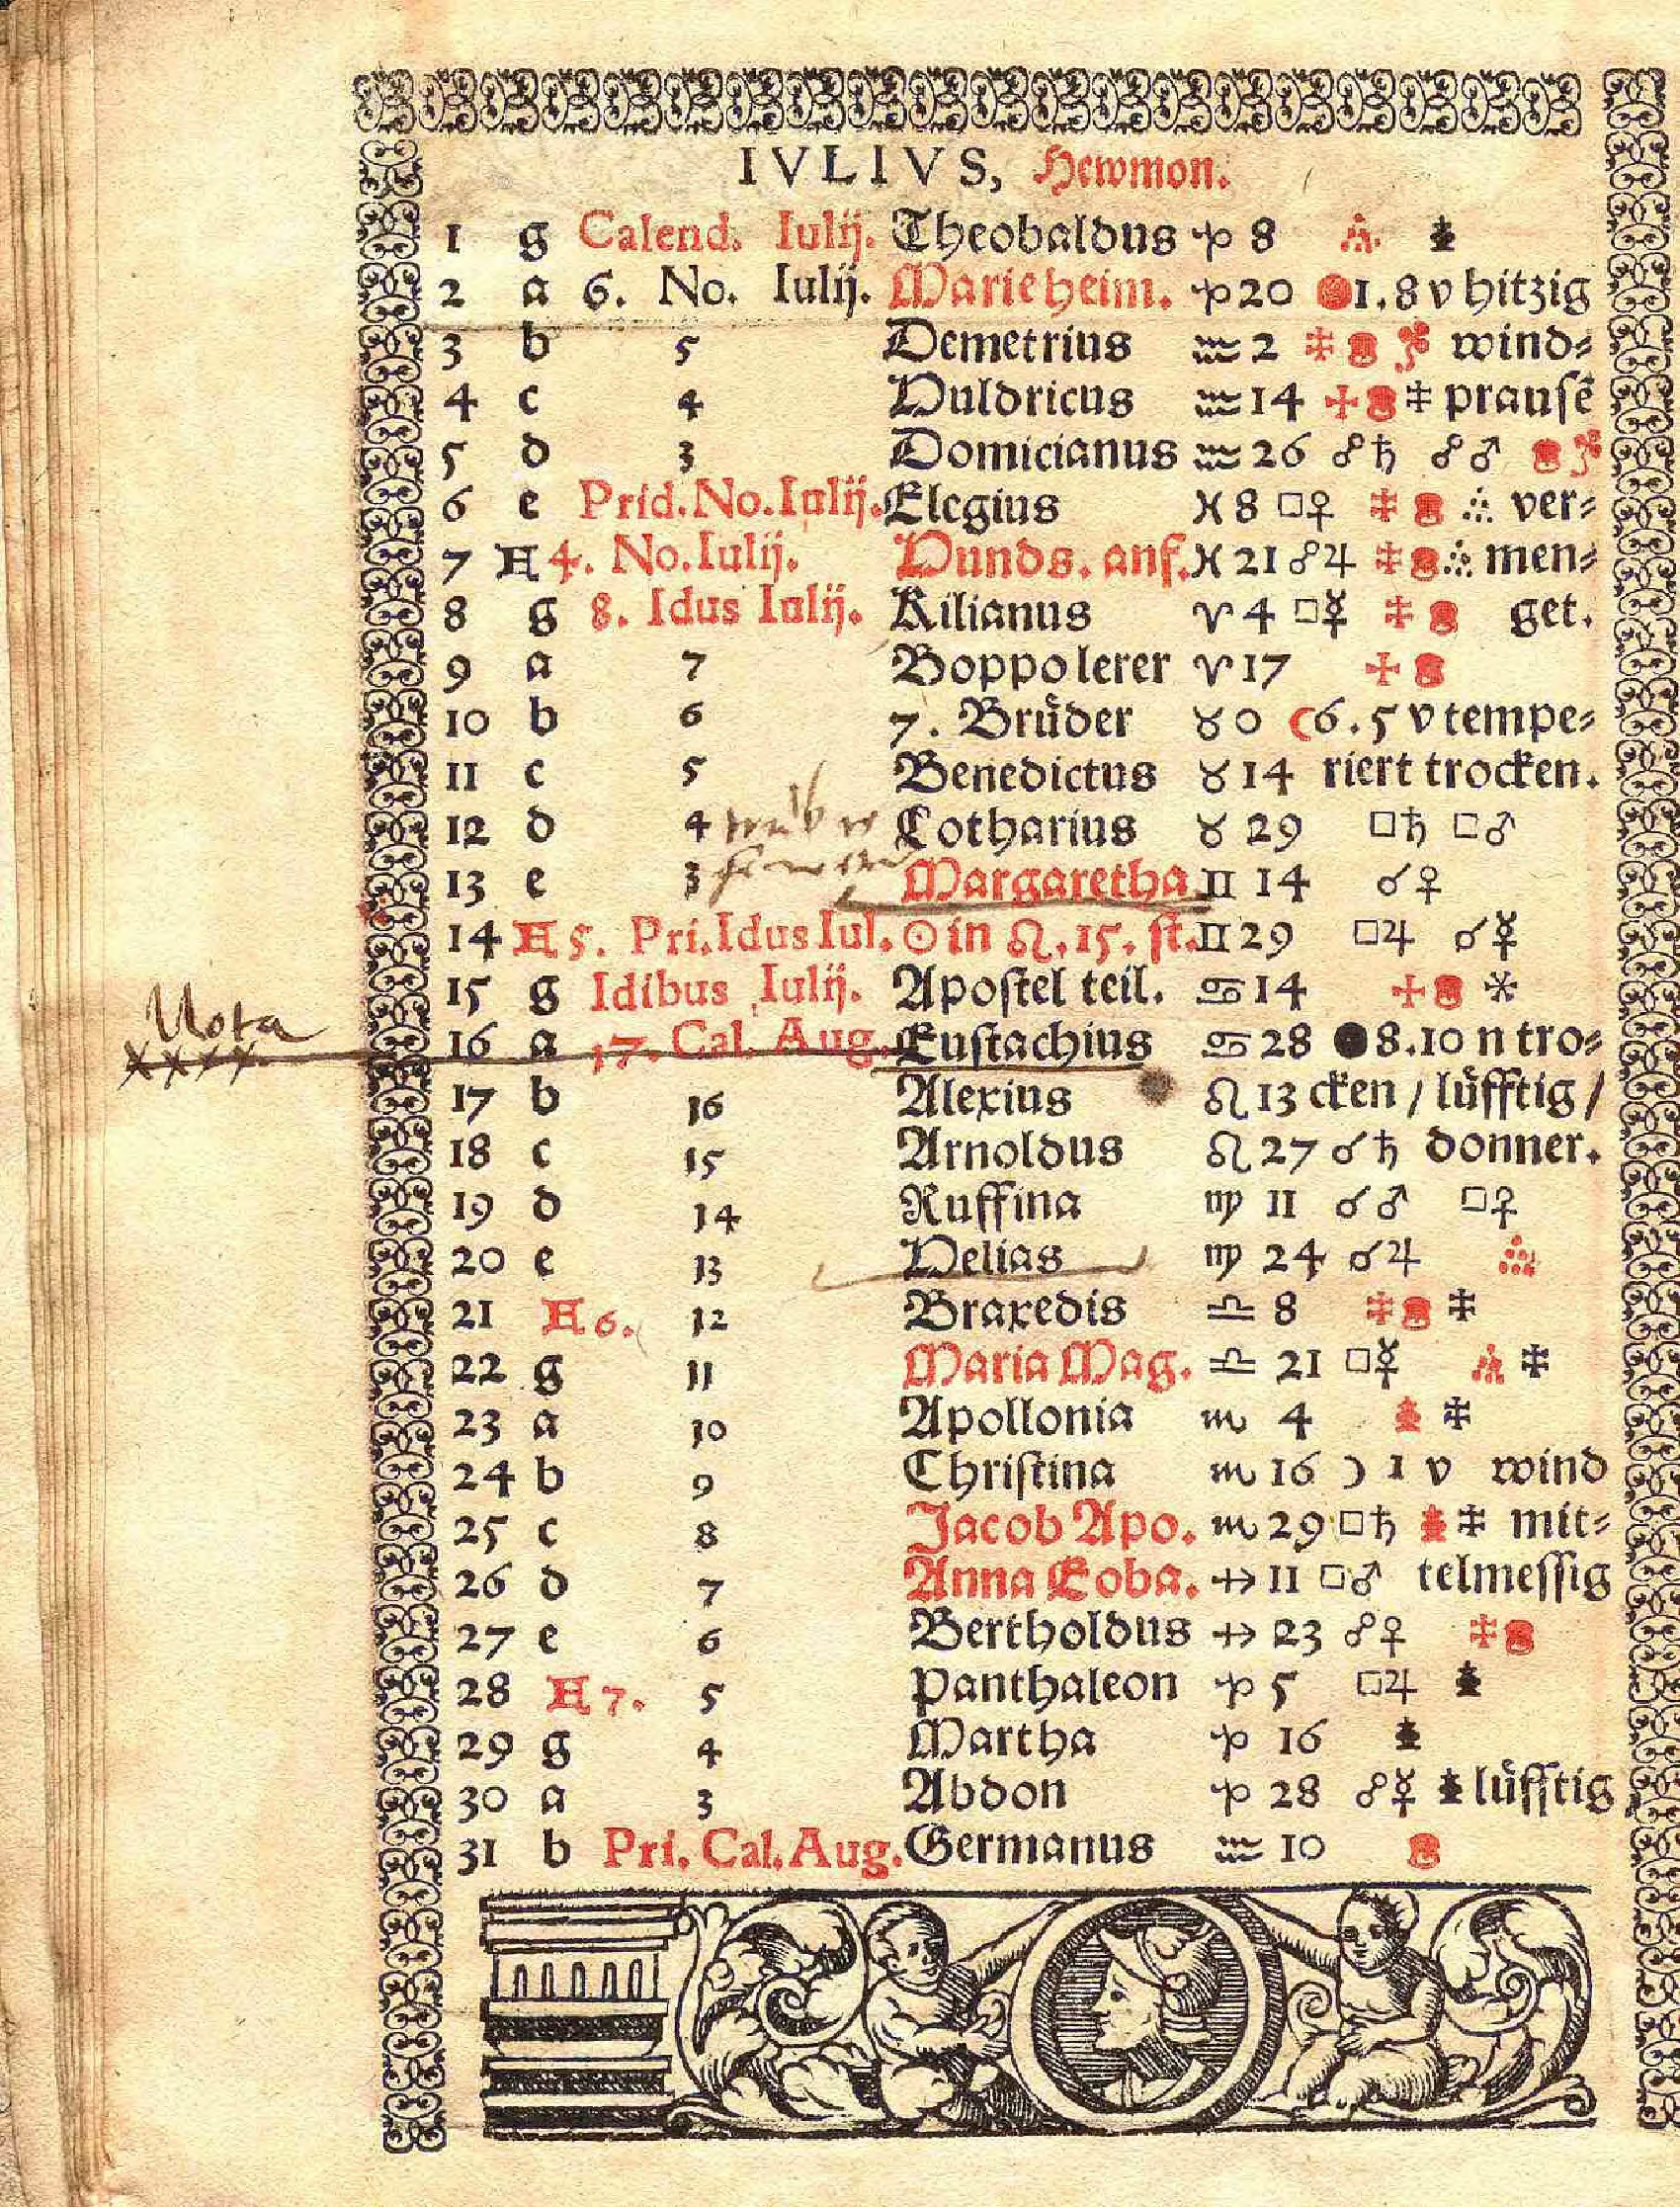 IVLIVS, Hewmon.
1 g Calend. Iulij. Theobaldus ♑ 8
2 a 6. No. Iulij. Marie heim. ♑ 20 1.8 v hitzig
3 b 5 Demetrius ♒ 2 wind⸗
4 c 4 Huldricus ♒ 14 prausē
5 d 3 Domicianus ♒ 26 ☍♄ ☍♂
6 e Prid. No. Iulij. Elegius ♓ 8 □♀ ver⸗
7 H 4. No. Iulij. Hunds. anf. ♓ 21 ☍♃ men⸗
8 g 8. Idus Iulij. Kilianus ♈ 4 □☿ get.
9 a 7 Boppo lerer ♈ 17
10 b 6 7. Brüder ♉ 0 ☾6.5 v tempe⸗
11 c 5 Benedictus ♉ 14 riert trocken.
12 d 4 Lotharius ♉ 29 □♄ □♂
13 e 3 Margaretha ♊ 14 ☌♀
14 H 5. Pri. Idus Iul. ☉ in ♌. 15. st. ♊ 29 □♃ ☌☿
15 g Idibus Iulij. Apostel teil. ♋ 14 ⚹
Nota
xxxx 16 a 17. Cal. Aug. Eustachius ♋ 28 ●8.10 n tro⸗
17 b 16 Alexius ♌ 13 cken / lüfftig /
18 c 15 Arnoldus ♌ 27 ☌♄ donner.
19 d 14 Ruffina ♍ 11 ☌♂ □♀
20 e 13 Helias ♍ 24 ☌♃
21 H 6. 12 Braxedis ♎ 8
22 g 11 Maria Mag. ♎ 21 □☿
23 a 10 Apollonia ♏ 4
24 b 9 Christina ♏ 16 ☽ 1 v wind
25 c 8 Jacob Apo. ♏ 29 □♄ mit⸗
26 d 7 Anna Eoba. ♐ 11 □♂ telmessig
27 e 6 Bertholdus ♐ 23 ☍♀
28 H 7. 5 Panthaleon ♑ 5 □♃
29 g 4 Martha ♑ 16
30 a 3 Abdon ♑ 28 ☍☿ lüfftig
31 b Pri. Cal. Aug. Germanus ♒ 10